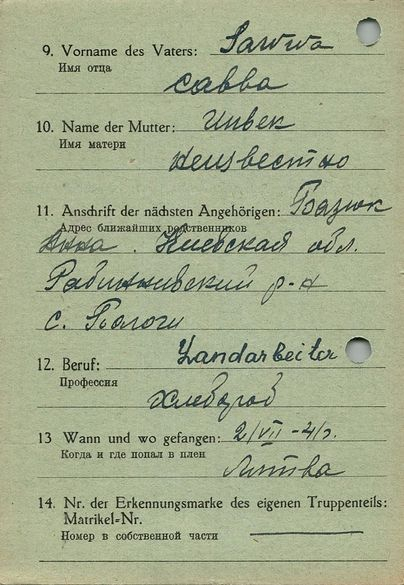 9. Vorname des Vaters: Sawwa
Имя отца
Савва
10. Name der Mutter: Unbek
Имя матери
неизвестно
11. Anschrift der nächsten Angehörigen:
Адрес ближайших родственников
Анна. Киевская обл.
р-н
с.
12. Beruf: Landarbeiter
Профессия
Хлебороб
13 Wann und wo gefangen: 2/VII-41г.
Когда и где попал в плен
Литва
14. Nr. der Erkennungsmarke des eigenen Truppenteils:
Matrikel-Nr.
Номер в собственной части